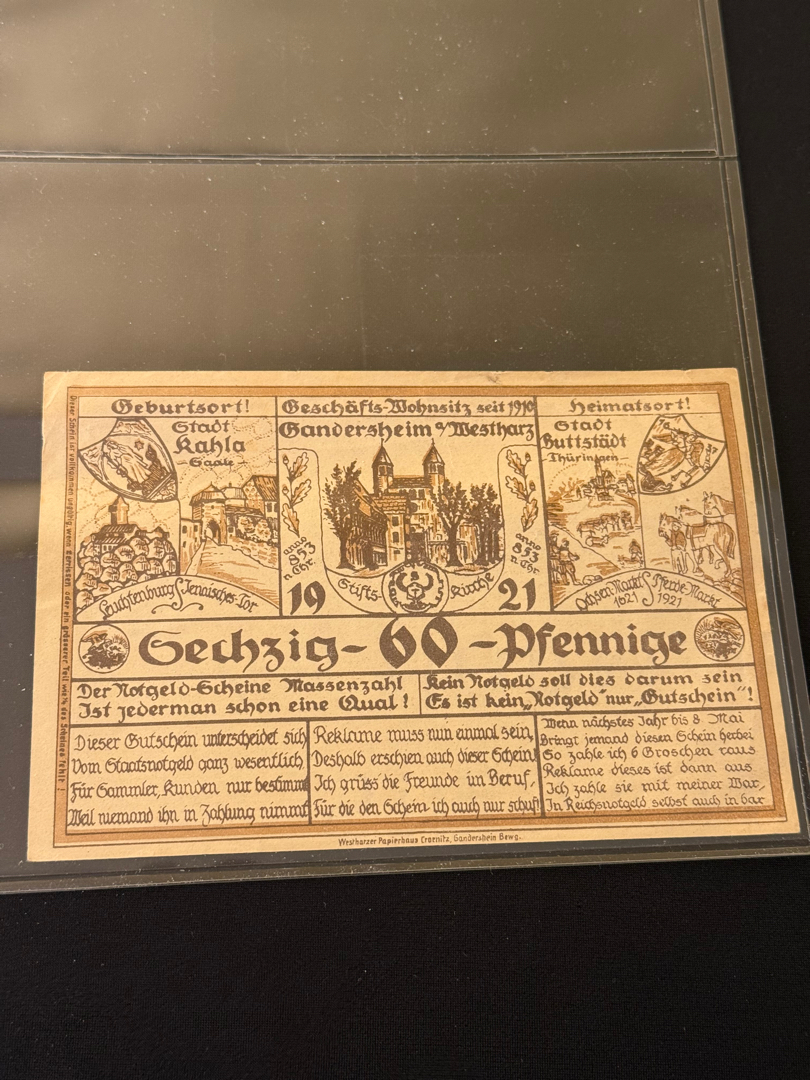 Geburtsort!
Stadt
Kahla
- Saale -
Leuchtenburg Jenaisches-Tor
Geschäfts-Wohnsitz seit 1910
Gandersheim a/Westharz
anno
853
n. Chr.
anno
853
n. Chr.
19 Stifts-kirche 21
Heimatsort!
Stadt
Buttstädt
- Thüringen -
Ochsen-Markt Pferde-Markt
1621 1921
Sechzig - 60 - Pfennige
Der Notgeld-Scheine Massenzahl
Ist jederman schon eine Qual!
Kein Notgeld soll dies darum sein
Es ist kein „Notgeld" nur „Gutschein"!
Dieser Gutschein unterscheidet sich
Vom Staatsnotgeld ganz wesentlich,
Für Sammler, Kunden nur bestimmt
Weil niemand ihn in Zahlung nimmt
Reklame muss nun einmal sein,
Deshalb erschien auch dieser Schein!
Ich grüss die Freunde im Beruf,
Für die den Schein ich auch nur schuf!
Wenn nächstes Jahr bis 8. Mai
Bringt jemand diesen Schein herbei
So zahle ich 6 Groschen raus
Reklame dieses ist dann aus.
Ich zahle sie mit meiner War,
In Reichsnotgeld selbst auch in bar
Dieser Schein ist vollkommen ungültig wenn zerrissen oder ein grösserer Teil des Scheines fehlt!
Westharzer Papierhaus Craenitz, Gandersheim Bewg.